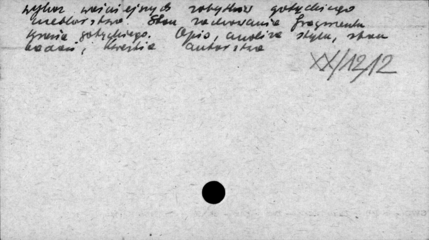 wykaz ważniejszych zabytków gotyckiego
meblarstwa. Stan zachowania fragmentu
gotyckiego. Opis, analiza stylu, stan
badań, kwestia autorstwa
XX/12,12